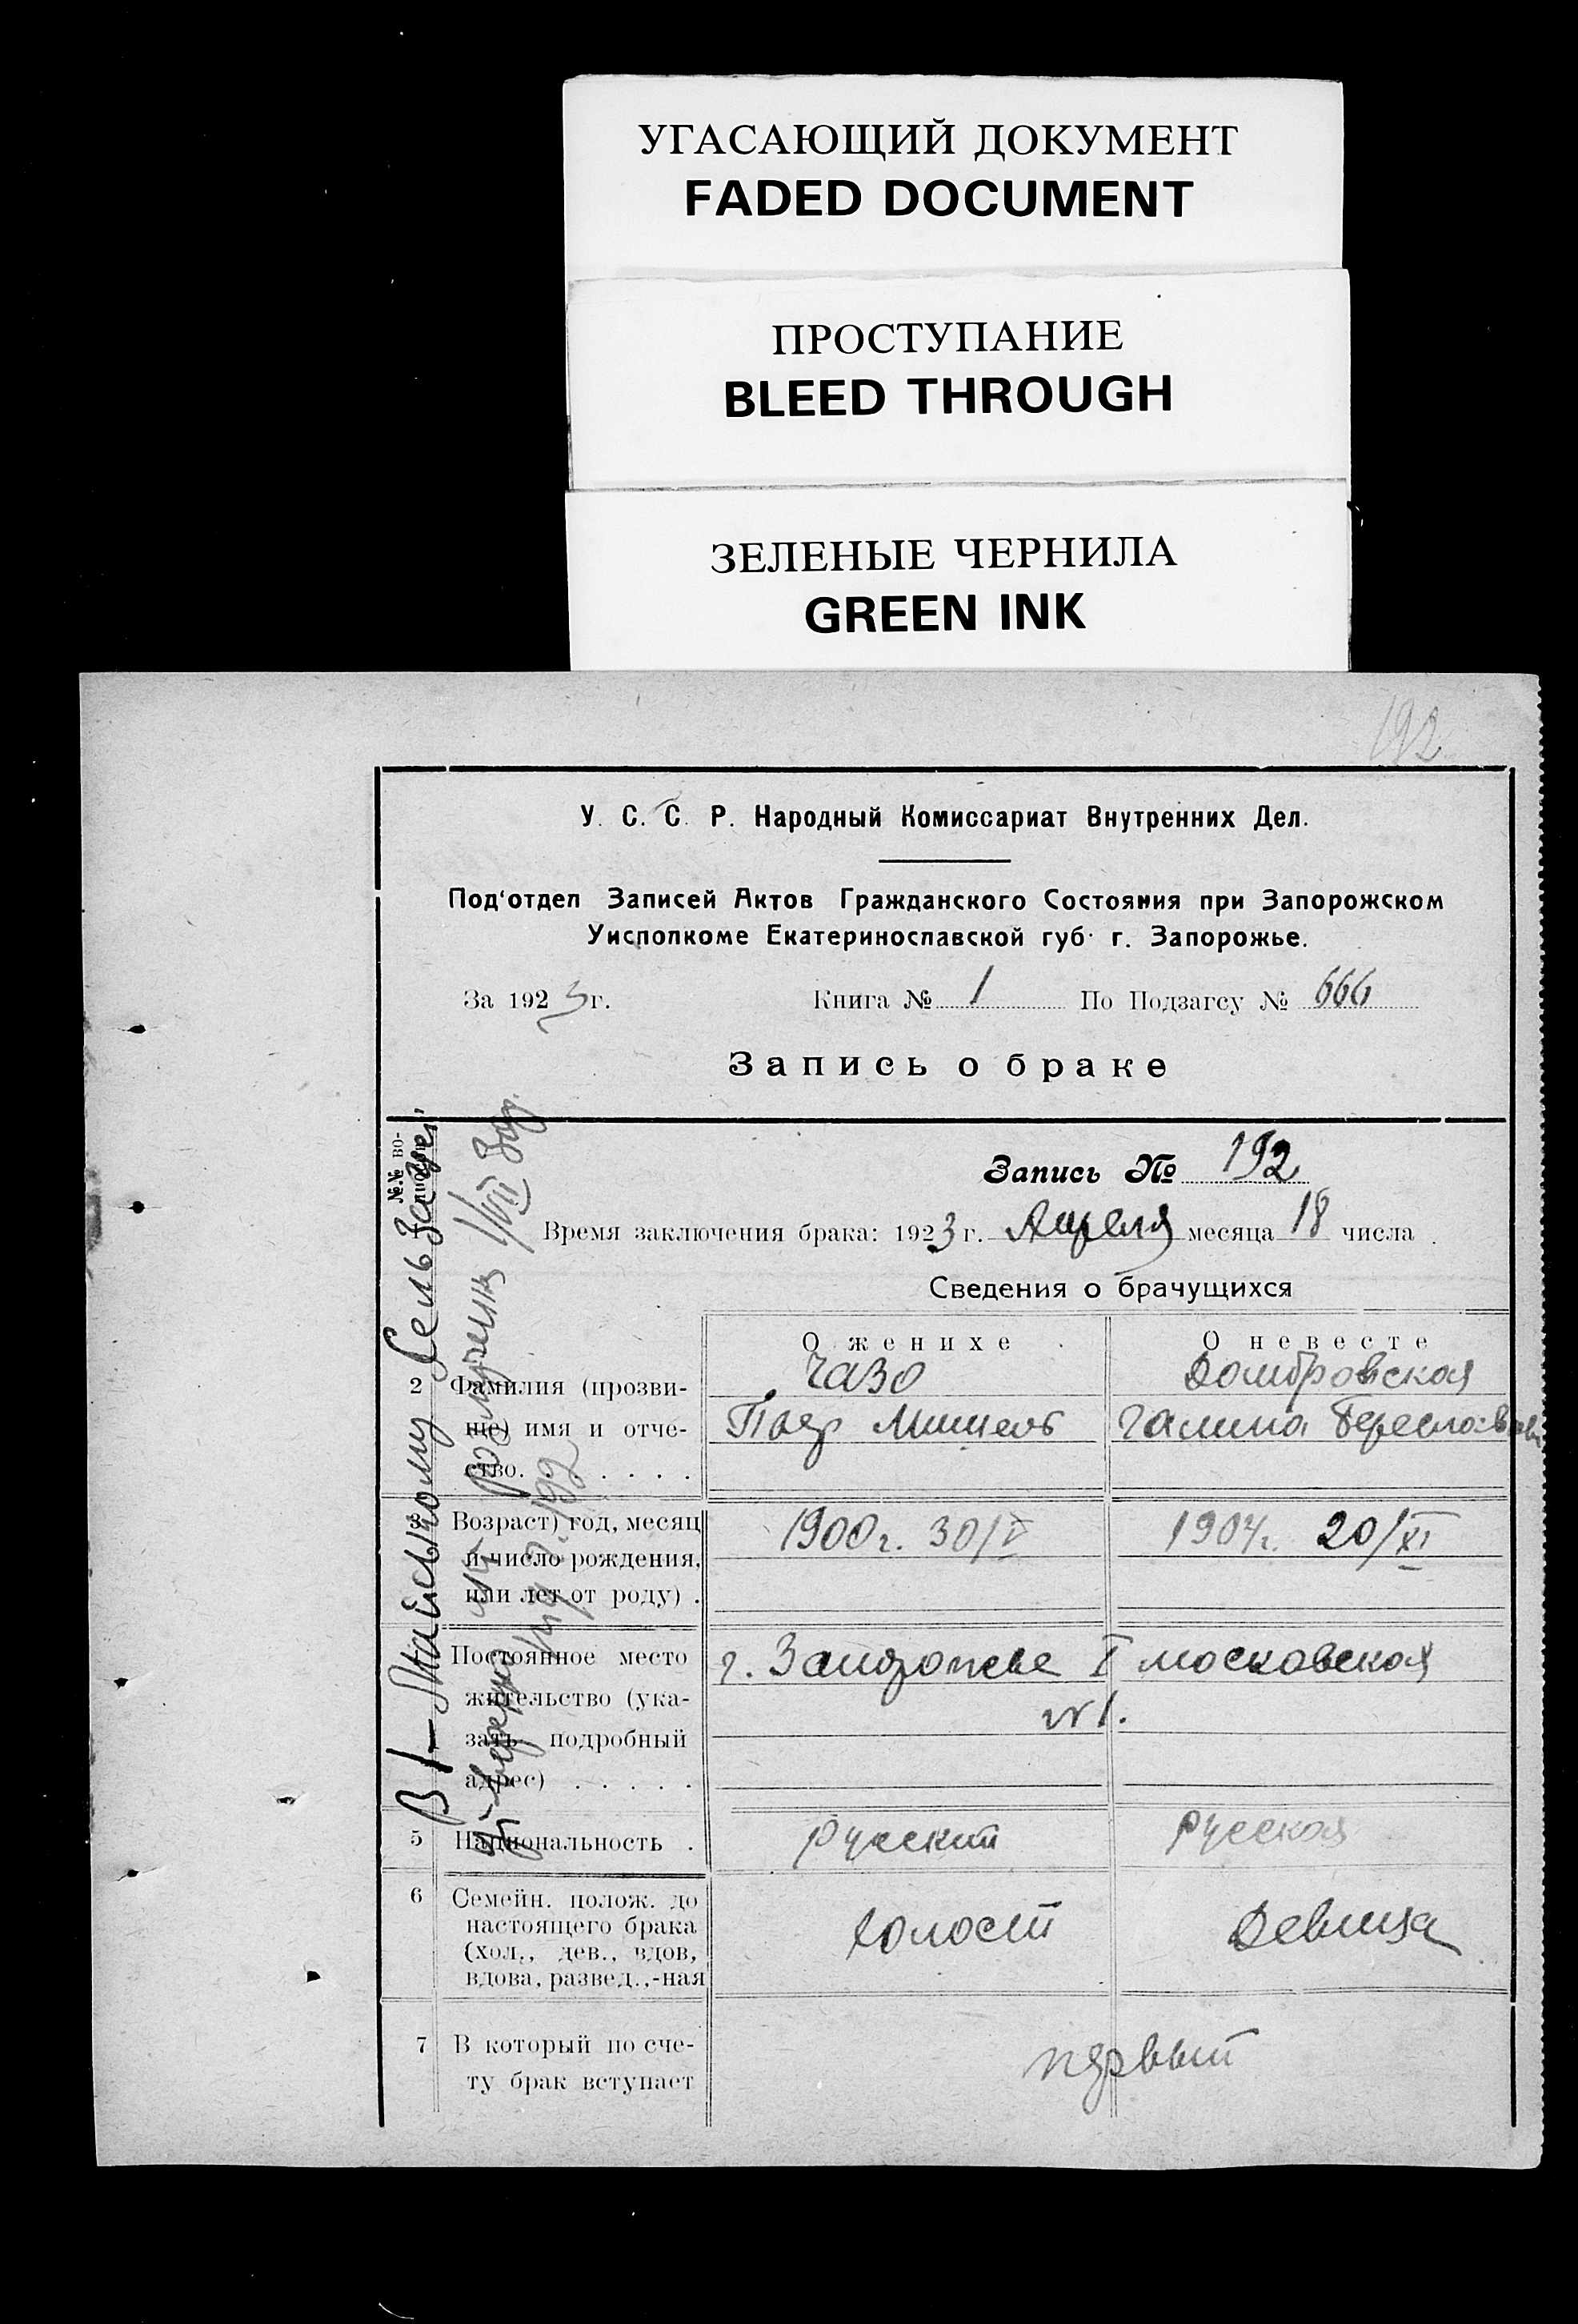 УГАСАЮЩИЙ ДОКУМЕНТ
FADED DOCUMENT
ПРОСТУПАНИЕ
BLEED THROUGH
ЗЕЛЕНЫЕ ЧЕРНИЛА
GREEN INK
192
У. С. С. Р. Народный Комиссариат Внутренних Дел.
Под'отдел Записей Актов Гражданского Состояния при Запорожском
Уисполкоме Екатеринославской губ. г. Запорожье.
За 1923 г. Книга № 1 По Подзагсу № 666
Запись о браке
№№ во-
Запись № 192
Время заключения брака: 1923 г. Апреля месяца 18 числа.
Сведения о брачущихся
О женихе О невесте
Чазо Домбровская
2 Фамилия (прозви-
ще) имя и отче- Пьер Мишель Галина
ство. . . . . . .
3 Возраст) год, месяц 1900 г. 30/V 1904 г. 20/XI
и число рождения,
или лет от роду) .
Постоянное место г. Запорожье I московская
жительство (ука- №1.
зать подробный
адрес) . . . . .
5 Национальность . русский русская
6 Семейн. полож. до
настоящего брака холост девица
(хол., дев., вдов,
вдова, развед.,-ная
7 В который по сче- первый
ту брак вступает